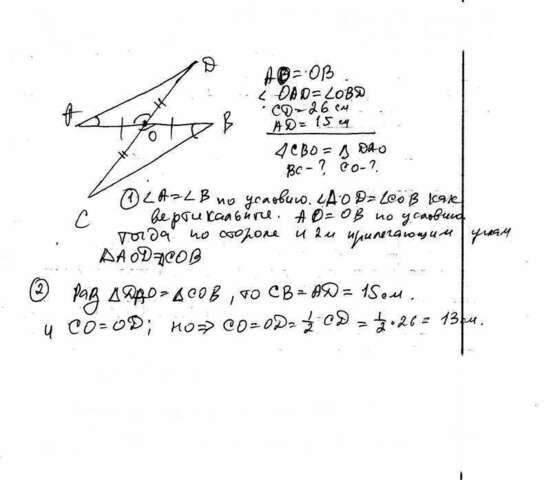 D
A
O
B
C
AO = OB
∠ OAD = ∠OBD
CD = 26 см
AD = 15 см
△CBO = △ DAO
BC - ? CO - ?
① ∠A = ∠B по условию. ∠AOD = ∠COB как
вертикальные. AO = OB по условию
тогда по стороне и 2м прилегающим углам
△AOD = △COB
② Раз △DAO = △COB, то CB = AD = 15 см.
и CO = OD; но ⇒ CO = OD = 1/2 CD = 1/2 • 26 = 13 см.